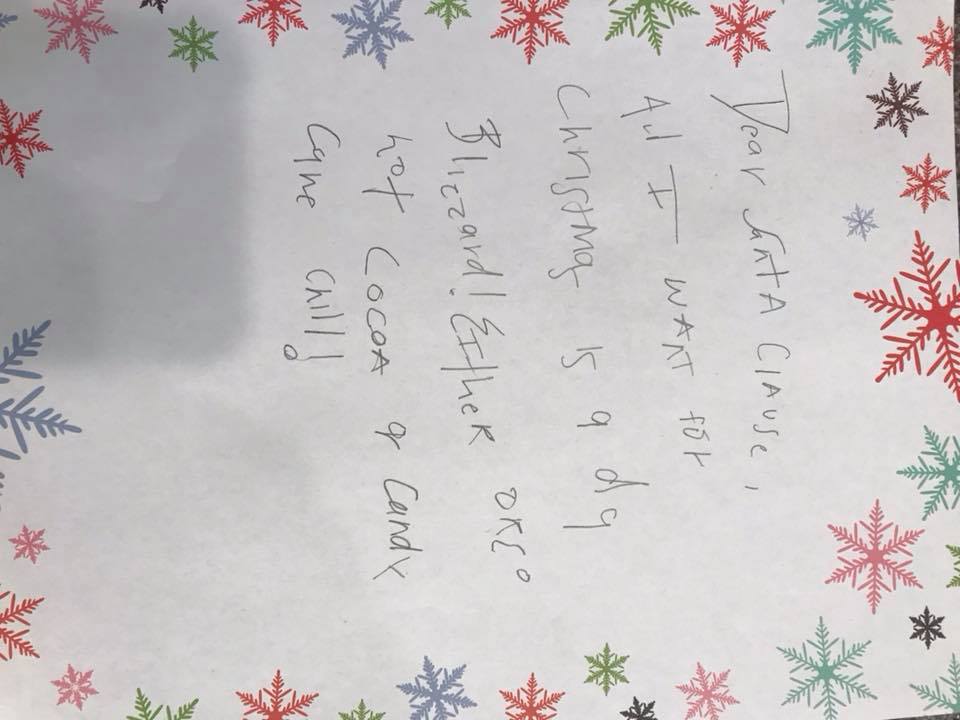 Dear SANTA ClAUSe,
All I WANT for
Christmas is a dq
Blizzard! EItheR OREO
hot COCOA or Candy
Cane Chill!